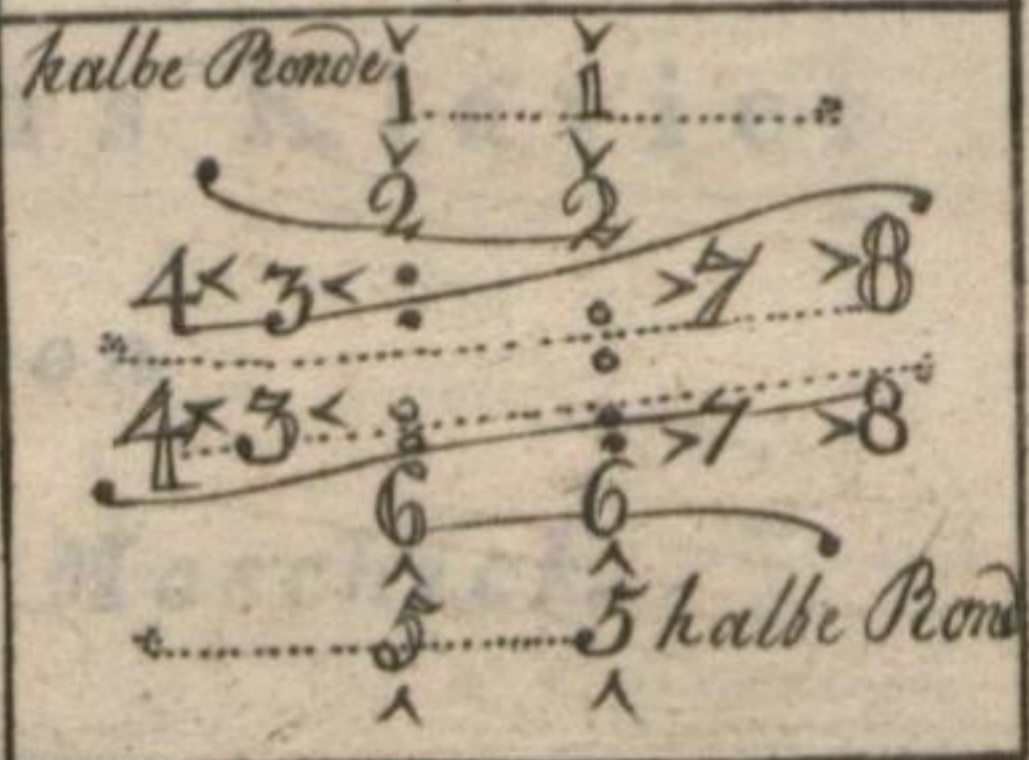 halbe Ronde 1 1
2 2
4 3 7 8
4 3 7 8
6 6
5 5 halbe Rond